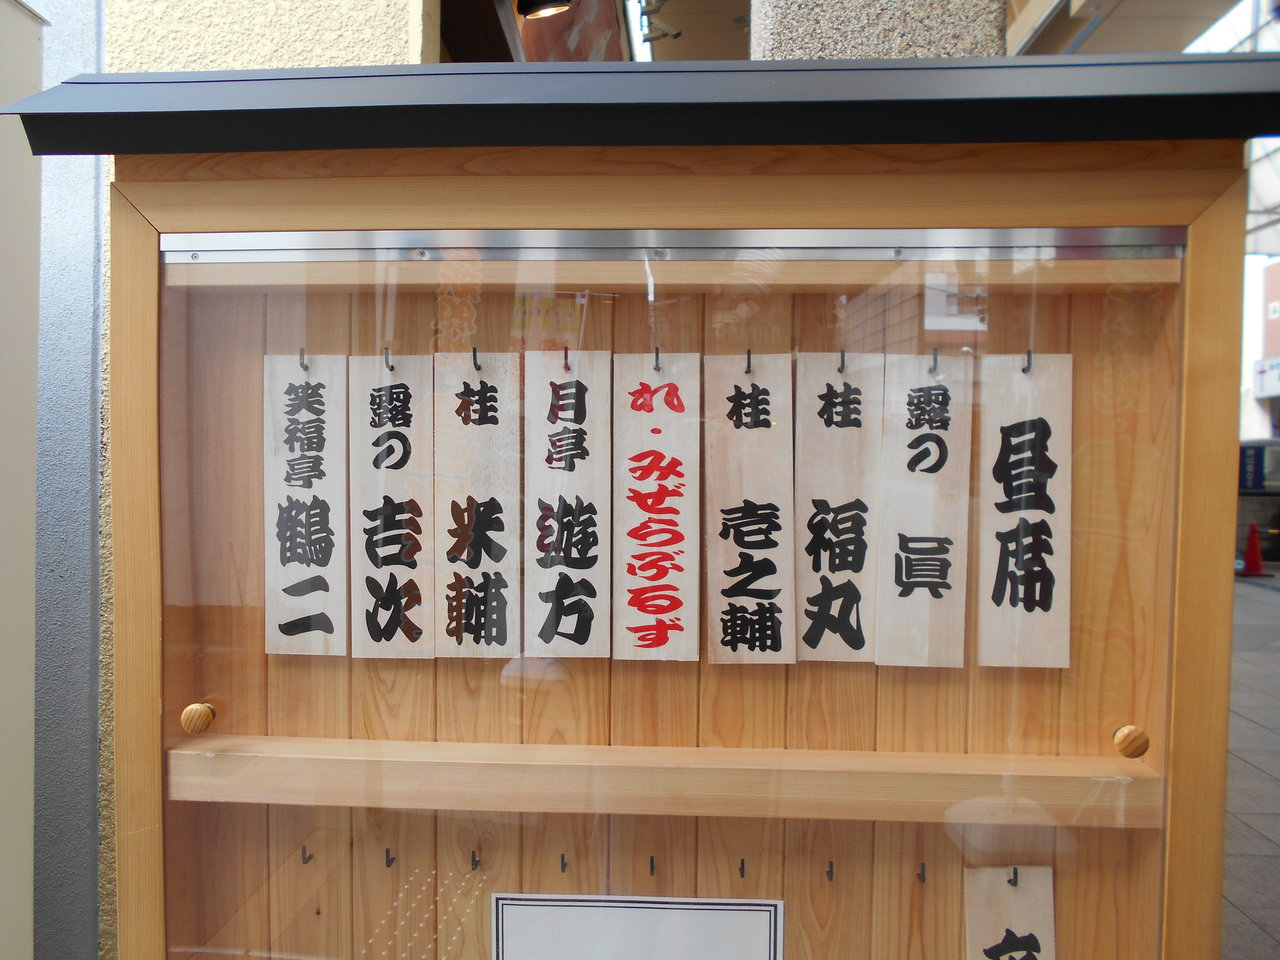 昼席
露の 眞
桂 福丸
桂 壱之輔
れ・みぜらぶるず
月亭 遊方
桂 米輔
露の 吉次
笑福亭 鶴二